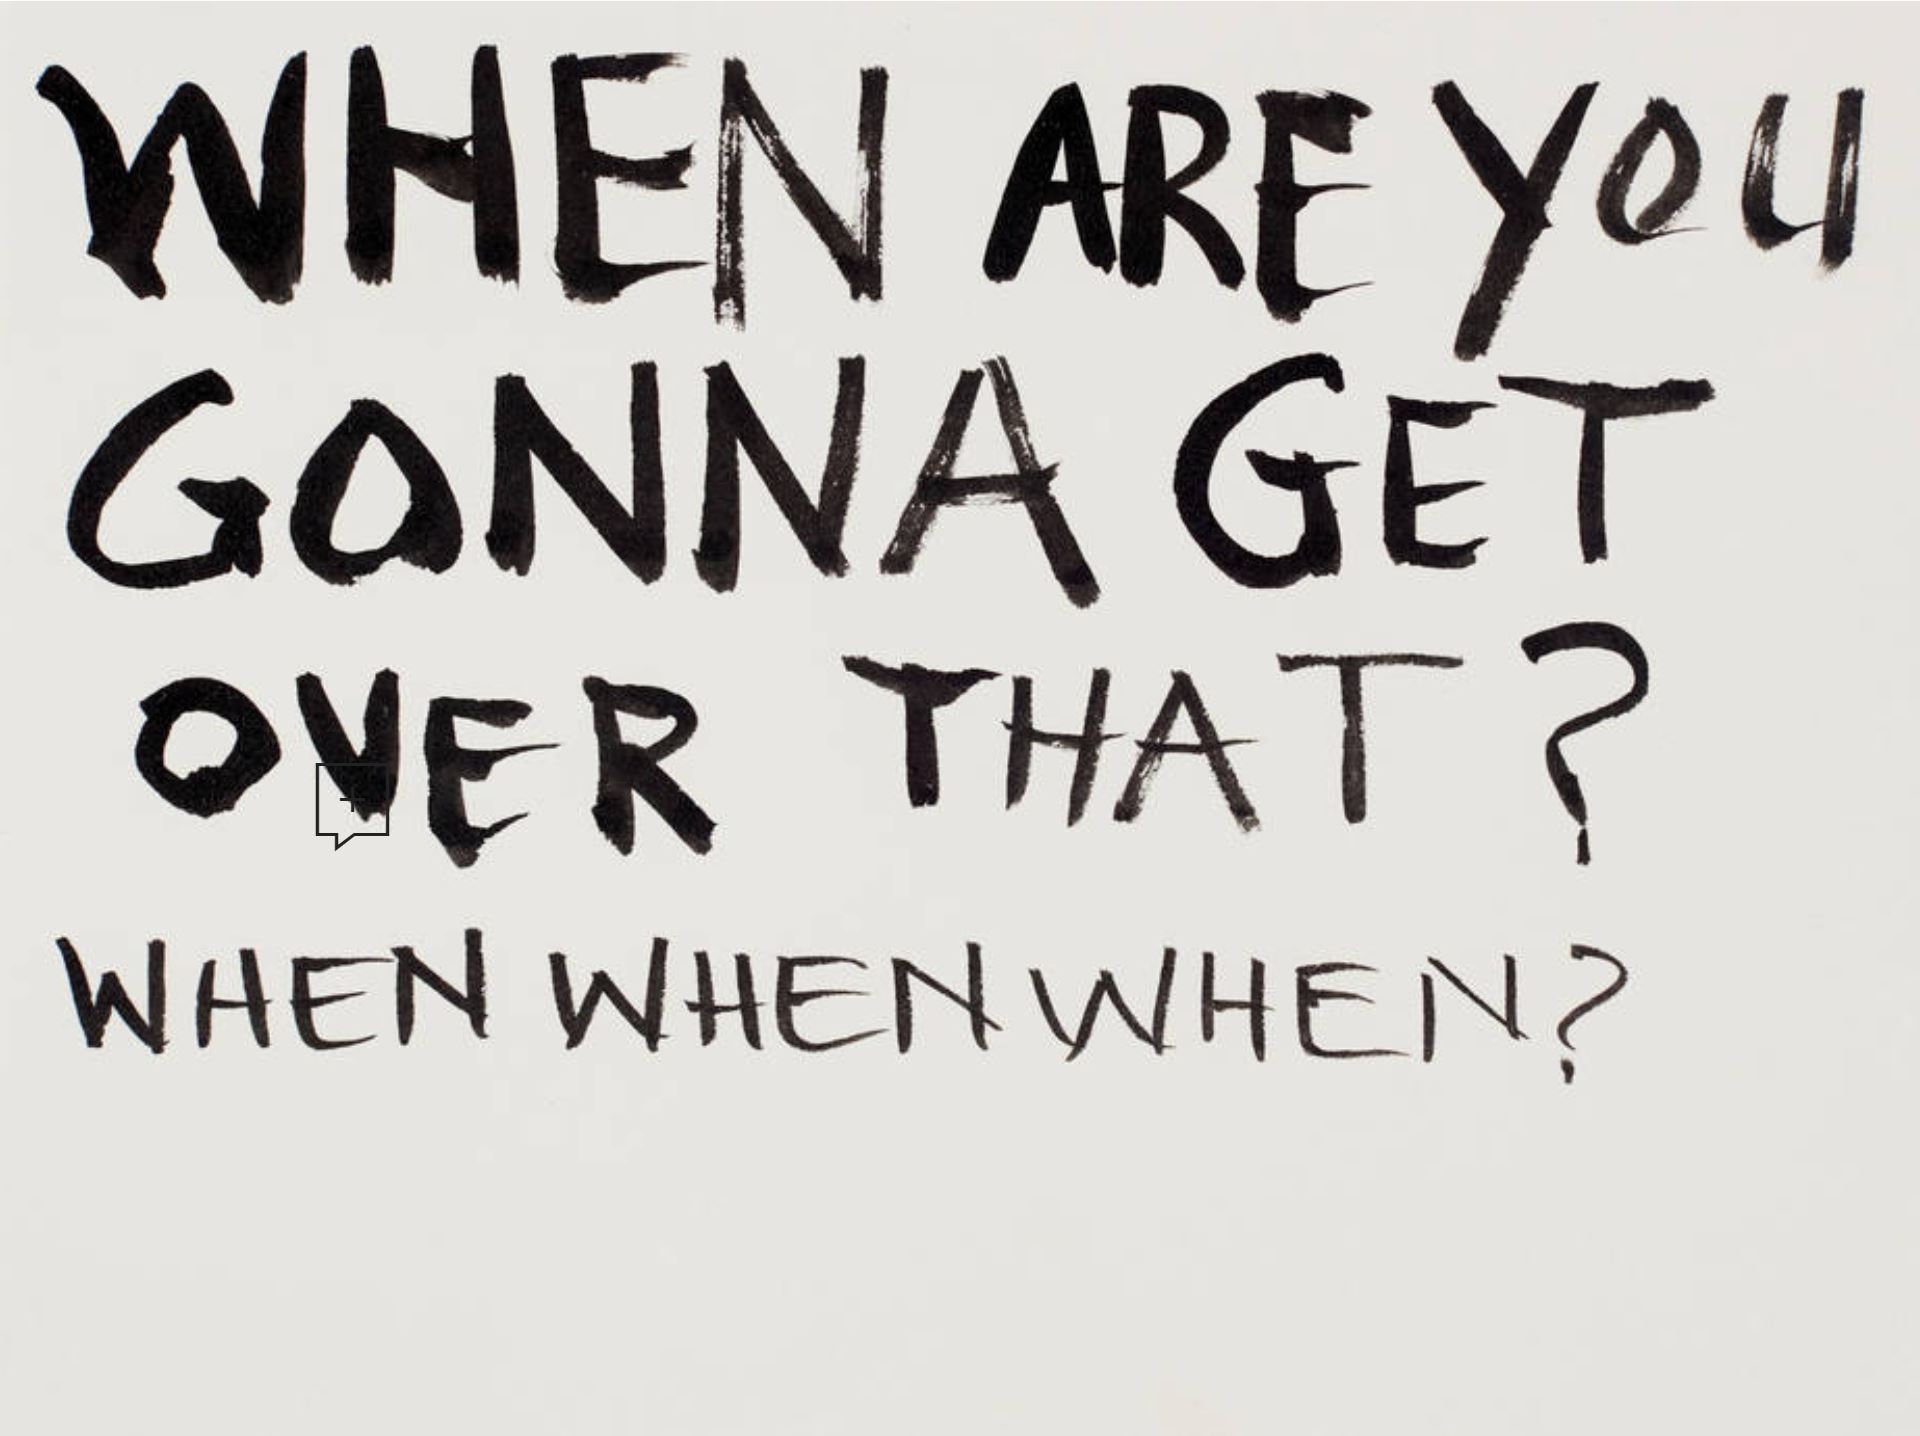 WHEN ARE YOU
GONNA GET
OVER THAT?
WHEN WHEN WHEN?